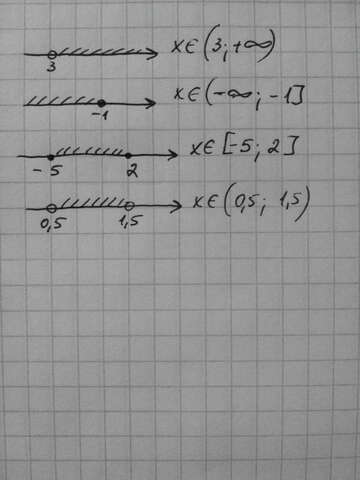 3 x∈(3; +∞)
-1 x∈(-∞; -1]
-5 2 x∈[-5; 2]
0,5 1,5 x∈(0,5; 1,5)